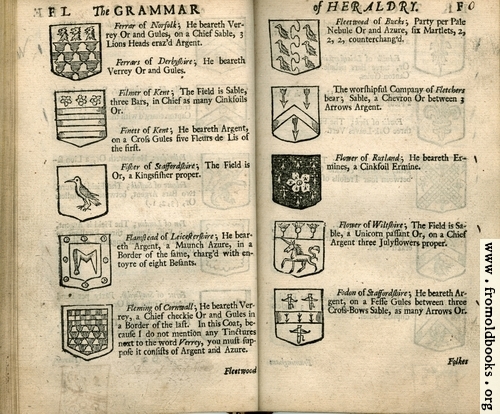 F L The GRAMMAR
Ferrar of Norfolk; He beareth Ver-
rey Or and Gules, on a Chief Sable, 3
Lions Heads eraz'd Argent.
Ferrars of Derbyshire; He beareth
Verrey Or and Gules.
Filmer of Kent; The Field is Sable,
three Bars, in Chief as many Cinkfoils
Or.
Finett of Kent; He beareth Argent,
on a Cross Gules five Fleurs de Lis of
the first.
Fisher of Staffordshire; The Field is
Or, a Kingsfisher proper.
Flamstead of Leicestershire; He bear-
eth Argent, a Maunch Azure, in a
Border of the same, charg'd with en-
toyre of eight Besants.
Fleming of Cornwall; He beareth Ver-
rey, a Chief checkie Or and Gules in
a Border of the last. In this Coat, be-
cause I do not mention any Tinctures
next to the word Verrey, you must sup-
pose it consists of Argent and Azure.
Fleetwood
of HERALDRY. F O
Fleetwood of Bucks; Party per Pale
Nebule Or and Azure, six Martlets, 2,
2, 2, counterchang'd.
The worshipful Company of Fletchers
bear; Sable, a Chevron Or between 3
Arrows Argent.
Flower of Rutland; He beareth Er-
mines, a Cinkfoil Ermine.
Flower of Wiltshire; The Field is Sa-
ble, a Unicorn passant Or, on a Chief
Argent three Julyflowers proper.
Fodon of Staffordshire; He beareth Ar-
gent, on a Fesse Gules between three
Cross-Bows Sable, as many Arrows Or.
Folkes
www.fromoldbooks.org